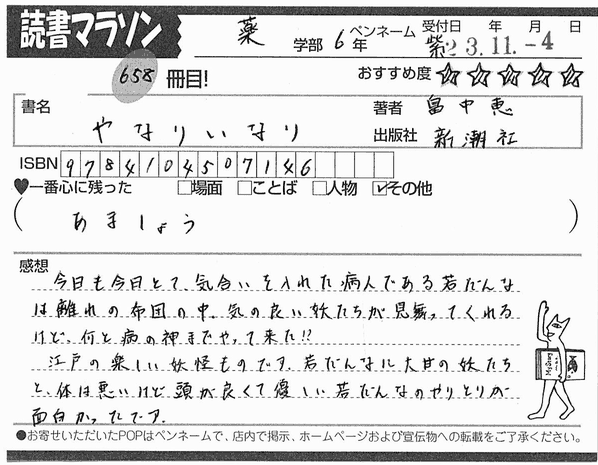 読書マラソン
薬 学部 6年 ペンネーム 紫
受付日 年 月 日
23.11.-4
658 冊目!
おすすめ度 ☆☆☆☆☆
書名 やなりいなり
著者 畠中恵
出版社 新潮社
ISBN 9784104507146
♥一番心に残った □場面 □ことば □人物 ☑その他
( あましょう )
感想
今日も今日とて、気合いを入れた病人である若だんな
は離れの布団の中。気の良い妖たちが見舞ってくれる
けど、何と病の神までやって来た!?
江戸の楽しい妖怪ものです。若だんなに大甘の妖たち
と、体は悪いけど頭が良くて優しい若だんなのやりとりが
面白かったです。
●お寄せいただいたPOPはペンネームで、店内で掲示、ホームページおよび宣伝物への転載をご了承ください。